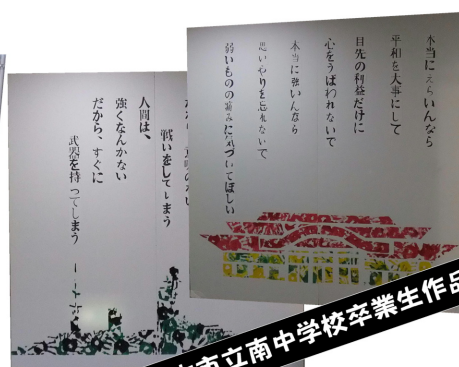 本当にえらいんなら
平和を大事にして
目先の利益だけに
心をうばわれないで
本当に強いんなら
思いやりを忘れないで
弱いものの痛みに気づいてほしい
戦いをしてしまう
人間は、
強くなんかない
だから、すぐに
武器を持ってしまう
市立南中学校卒業生作品